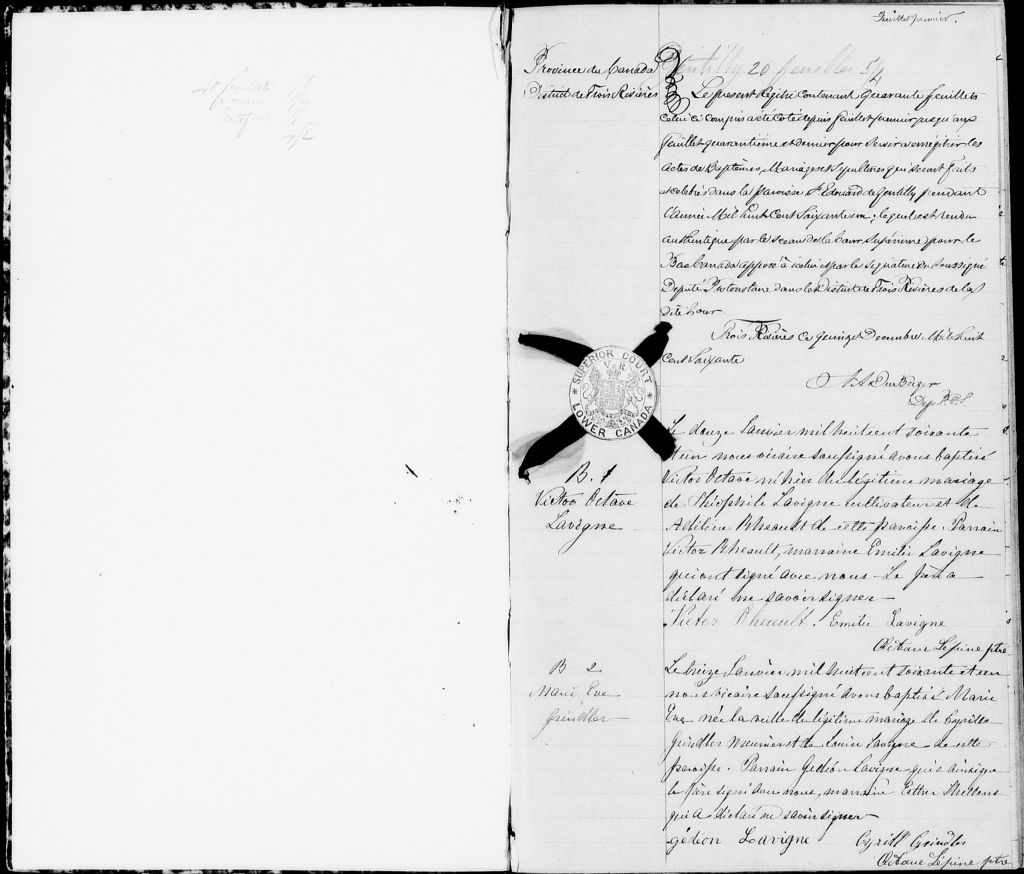 40 feuillets
Feuillet premier.
Province du Canada
District de Trois Rivières
Gentilly 20 feuilles 5/4
Le present Régitre contenant quarante feuillets
celui ci compris a été coté depuis feuillet premier jusqu'aux
feuillet quarantieme et dernier pour servir a enrégitrer les
actes de Baptêmes, Mariages et Sepultures qui seront faits
et célebrés dans la paroisse St Edouard de Gentilly pendant
l'année Mil huit Cent Soixante un; lequel est rendu
authentique par le sceau de la Cour Supérieure pour le
Bas Canada apposé à icelui et par le signature du soussigné
Deputé Protonotaire dans le District de Trois Rivières de la
dite Cour
Trois Rivières ce quinze Decembre Mil huit
Cent Soixante
Dep P.C.S.
SUPERIOR COURT
V R
LOWER CANADA
B. 1
Victor Octave
Lavigne
Le douze Janvier mil huit cent soixante
et un nous vicaire soussigné avons baptisé
Victor Octave né hier du légitime mariage
de Théophile Lavigne cultivateur et de
Rheault de cette paroisse. Parrain
Victor Rheault, marraine Emilie Lavigne
qui ont signé avec nous. Le père a
déclaré ne savoir signer
Victor Rheault. Emilie Lavigne
Octave Lépine ptre
B 2
Marie Eve
Grindler
Le treize Janvier mil huit cent soixante et un
nous vicaire soussigné avons baptisé Marie
Eve née la veille du légitime mariage de Cyrille
Grindler meunier et de Louise Lavigne de cette
paroisse. Parrain Gédéon Lavigne qui a ainsi que
le père signé avec nous, marraine Esther
qui a déclaré ne savoir signer
gédéon Lavigne Cyrill Grindler
Octave Lépine ptre